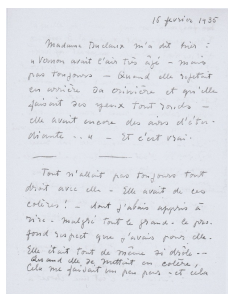 15 fevrier 1935
Madame Duclaux m'a dit hier :
« Vernon avait l'air très âgé – mais
pas toujours – Quand elle rejetait
en arrière sa crinière et qu'elle
faisait des yeux tout ronds –
elle avait encore des airs d'étu-
diante... » – Et c'est vrai.
Tout n'allait pas toujours tout
droit avec elle – Elle avait de ces
colères! – dont j'avais appris à
rire – malgré tout le grand – le pro-
fond respect que j'avais pour elle.
Elle était tout de même si drôle –
Quand elle se mettait en colère,
Cela me faisait un peu peur – et cela